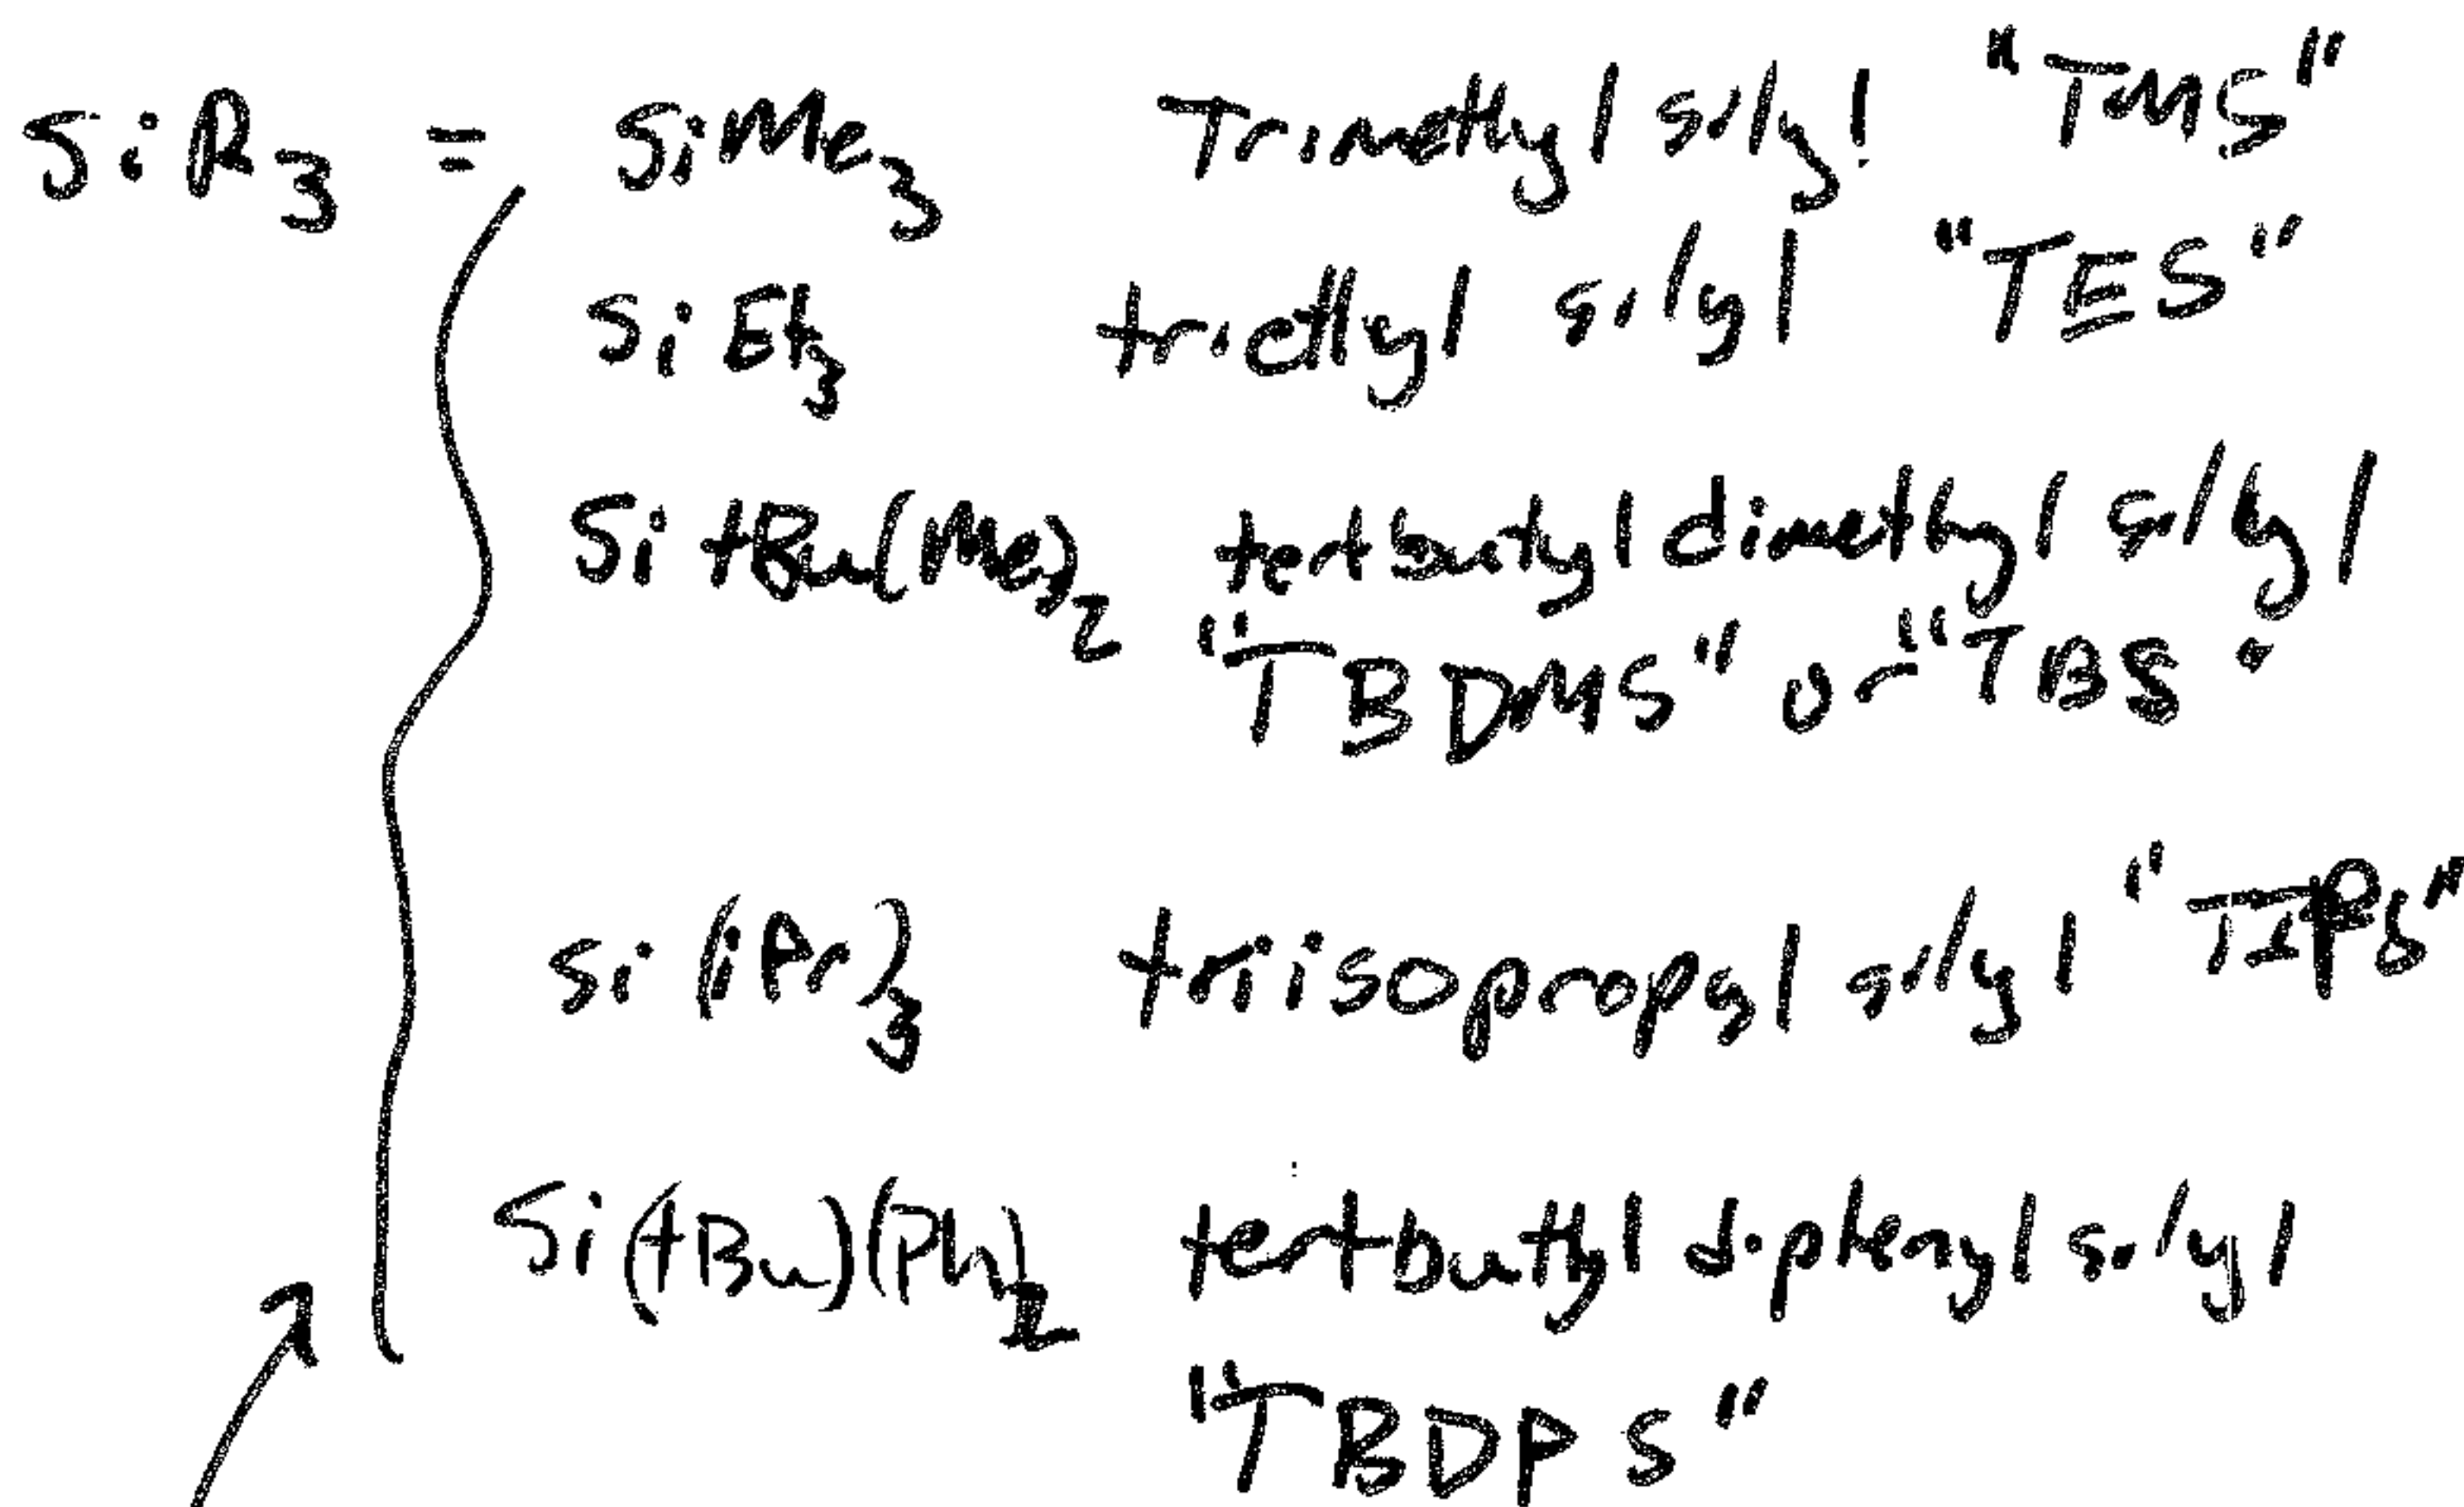 SiR3 = SiMe3 Trimethyl silyl "TMS"
SiEt3 triethyl silyl "TES"
Si tBu(Me)2 tertbutyl dimethyl silyl
"TBDMS" or "TBS"
Si (iPr)3 triisopropyl silyl "TIPS"
Si(tBu)(Ph)2 tertbutyl diphenyl silyl
"TBDPS"